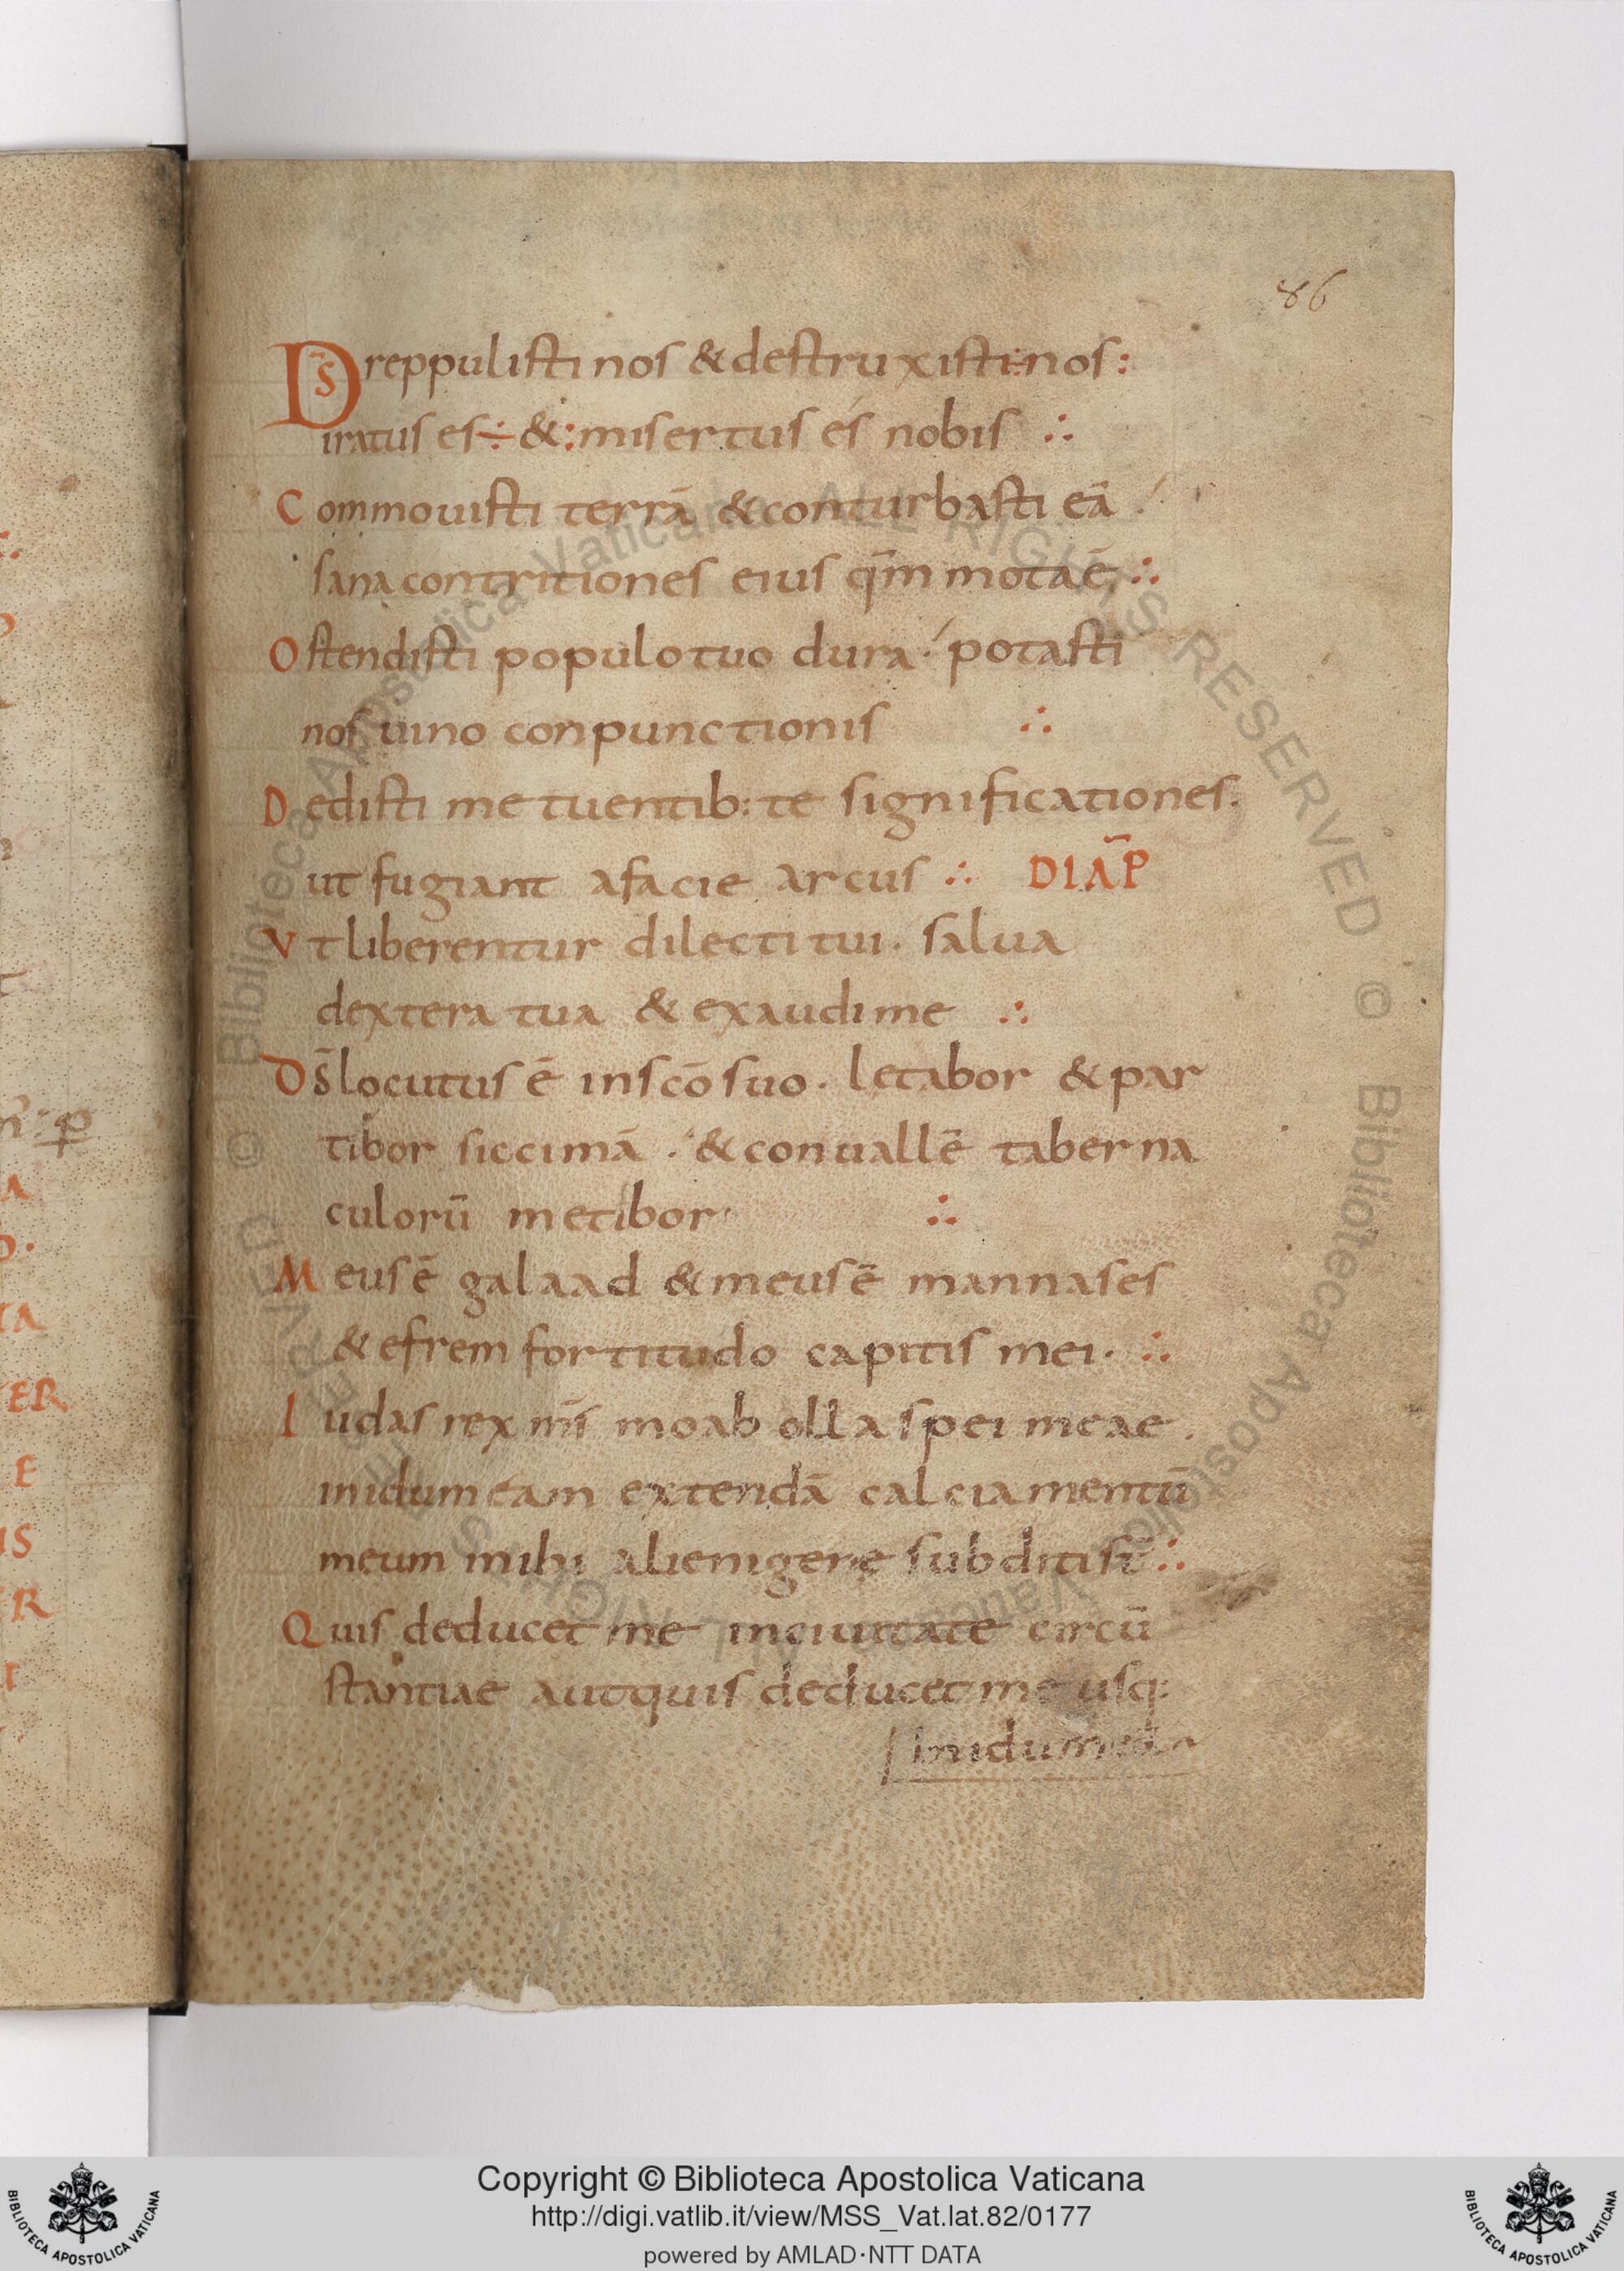 86
D̄S reppulisti nos & destruxisti÷nos:
iratus es÷ &:misertus és nobis ∴
Commouisti terrā & conturbasti eā.
sana contritiones eius qm̄ mota ē; ∴
Ostendisti populo tuo dura. potasti
nos uino conpunctionis ∴
Dedisti metuentib: te significationes.
ut fugiant a facie arcus ∴ DIAP̄
Vt liberentur dilecti tui. salua
dextera tua & exaudi me ∴
Ds̄ locutus ē in scō suo. letabor & par
tibor siccimā. & conuallē taberna
culorū metibor ∴
Meus ē galaad & meus ē mannases
& efrem fortitudo capitis mei. ∴
Iudas rex ms̄ moab olla spei meae.
in idumeam extendā calciamentū
meum mihi alienigene subditi st̄ ∴
Quis deducet me in ciuitate circū
stantiae aut quis deducet me usq:
in
Copyright © Biblioteca Apostolica Vaticana
http://digi.vatlib.it/view/MSS_Vat.lat.82/0177
powered by AMLAD·NTT DATA
BIBLIOTECA APOSTOLICA VATICANA
BIBLIOTECA APOSTOLICA VATICANA